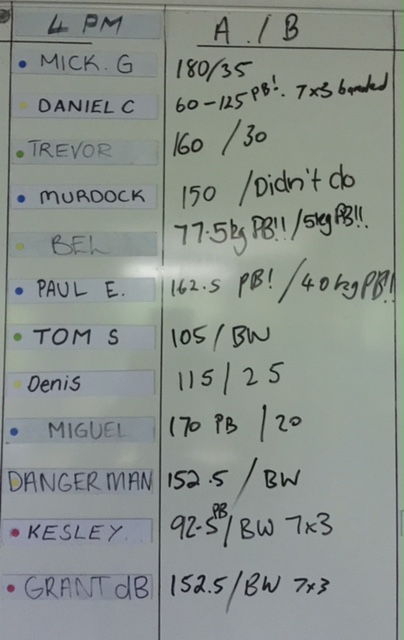 4 PM A / B
MICK. G 180/35
DANIEL C 60-125 PB! 7x3 banded
TREVOR 160 / 30
MURDOCK 150 / Didn't do
BEL 77.5kg PB!! / 5kg PB!!
PAUL E. 162.5 PB! / 40kg PB!!
TOM S 105 / BW
Denis 115 / 25
MIGUEL 170 PB / 20
DANGERMAN 152.5 / BW
KESLEY. 92.5 PB / BW 7x3
GRANT dB 152.5 / BW 7x3